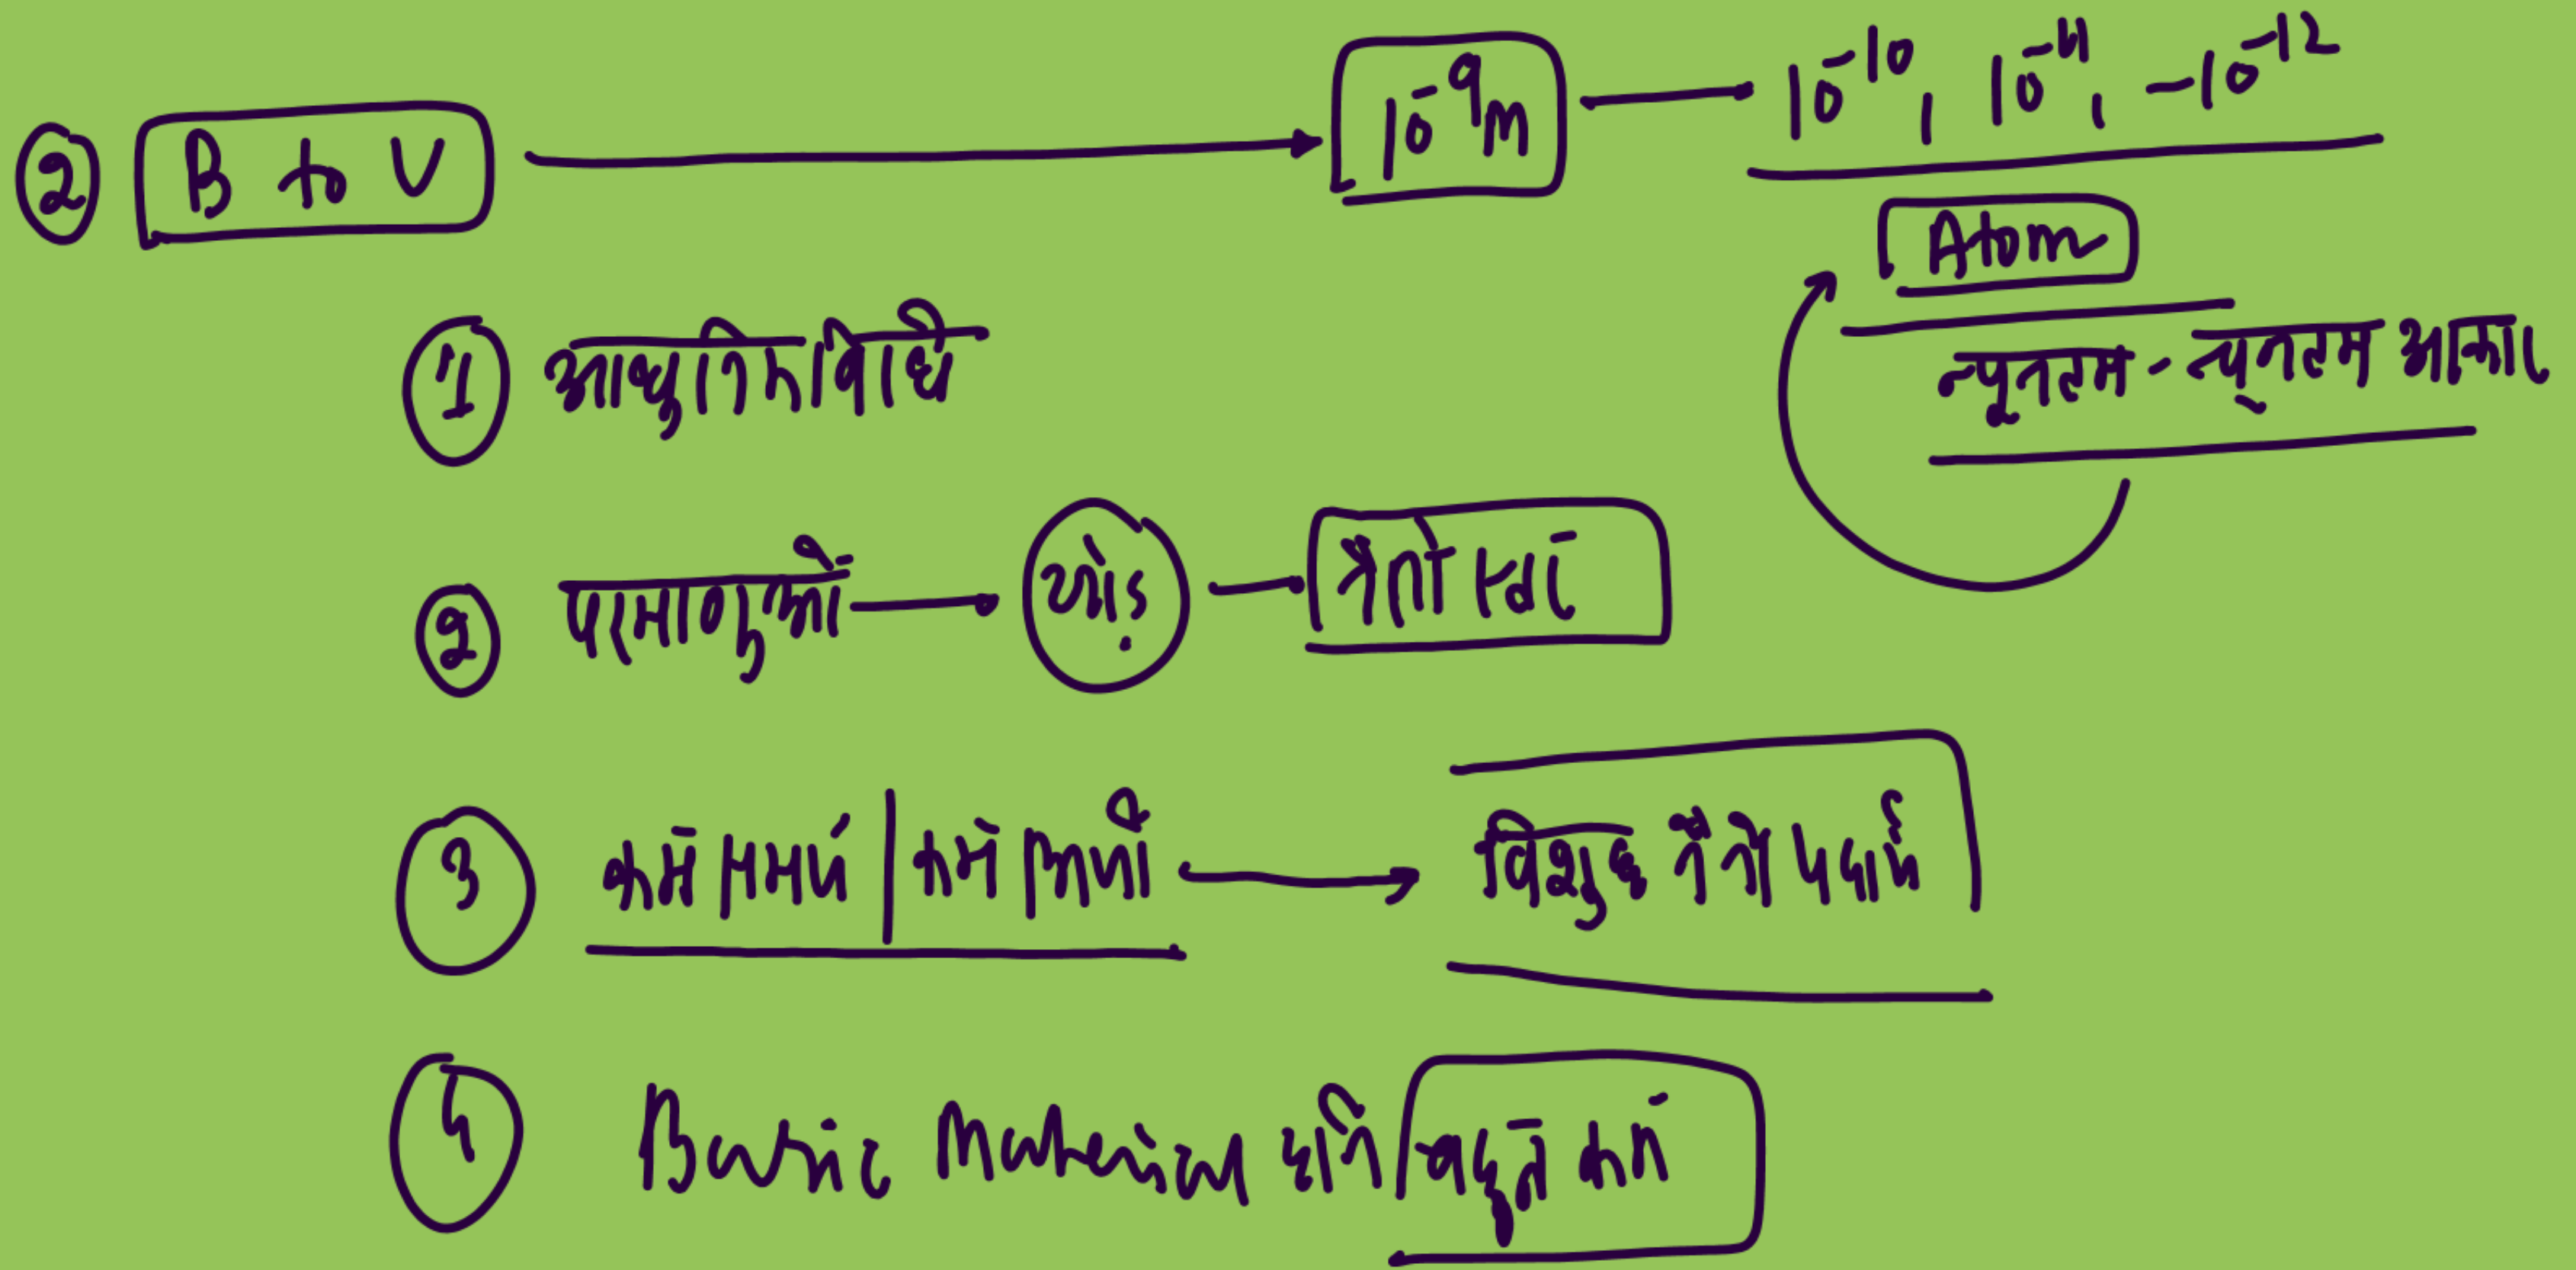 ② B to V → 10⁻⁹m → 10⁻¹⁰, 10⁻¹¹, -10⁻¹²
Atom
न्यूनतम - न्यूनतम आकार
① आधुनिक विधि
② परमाणुओं → जोड़ → नैनो स्तर
③ कम समय | कम ऊर्जा → विशुद्ध नैनो पदार्थ
④ Basic Material हानि बहुत कम